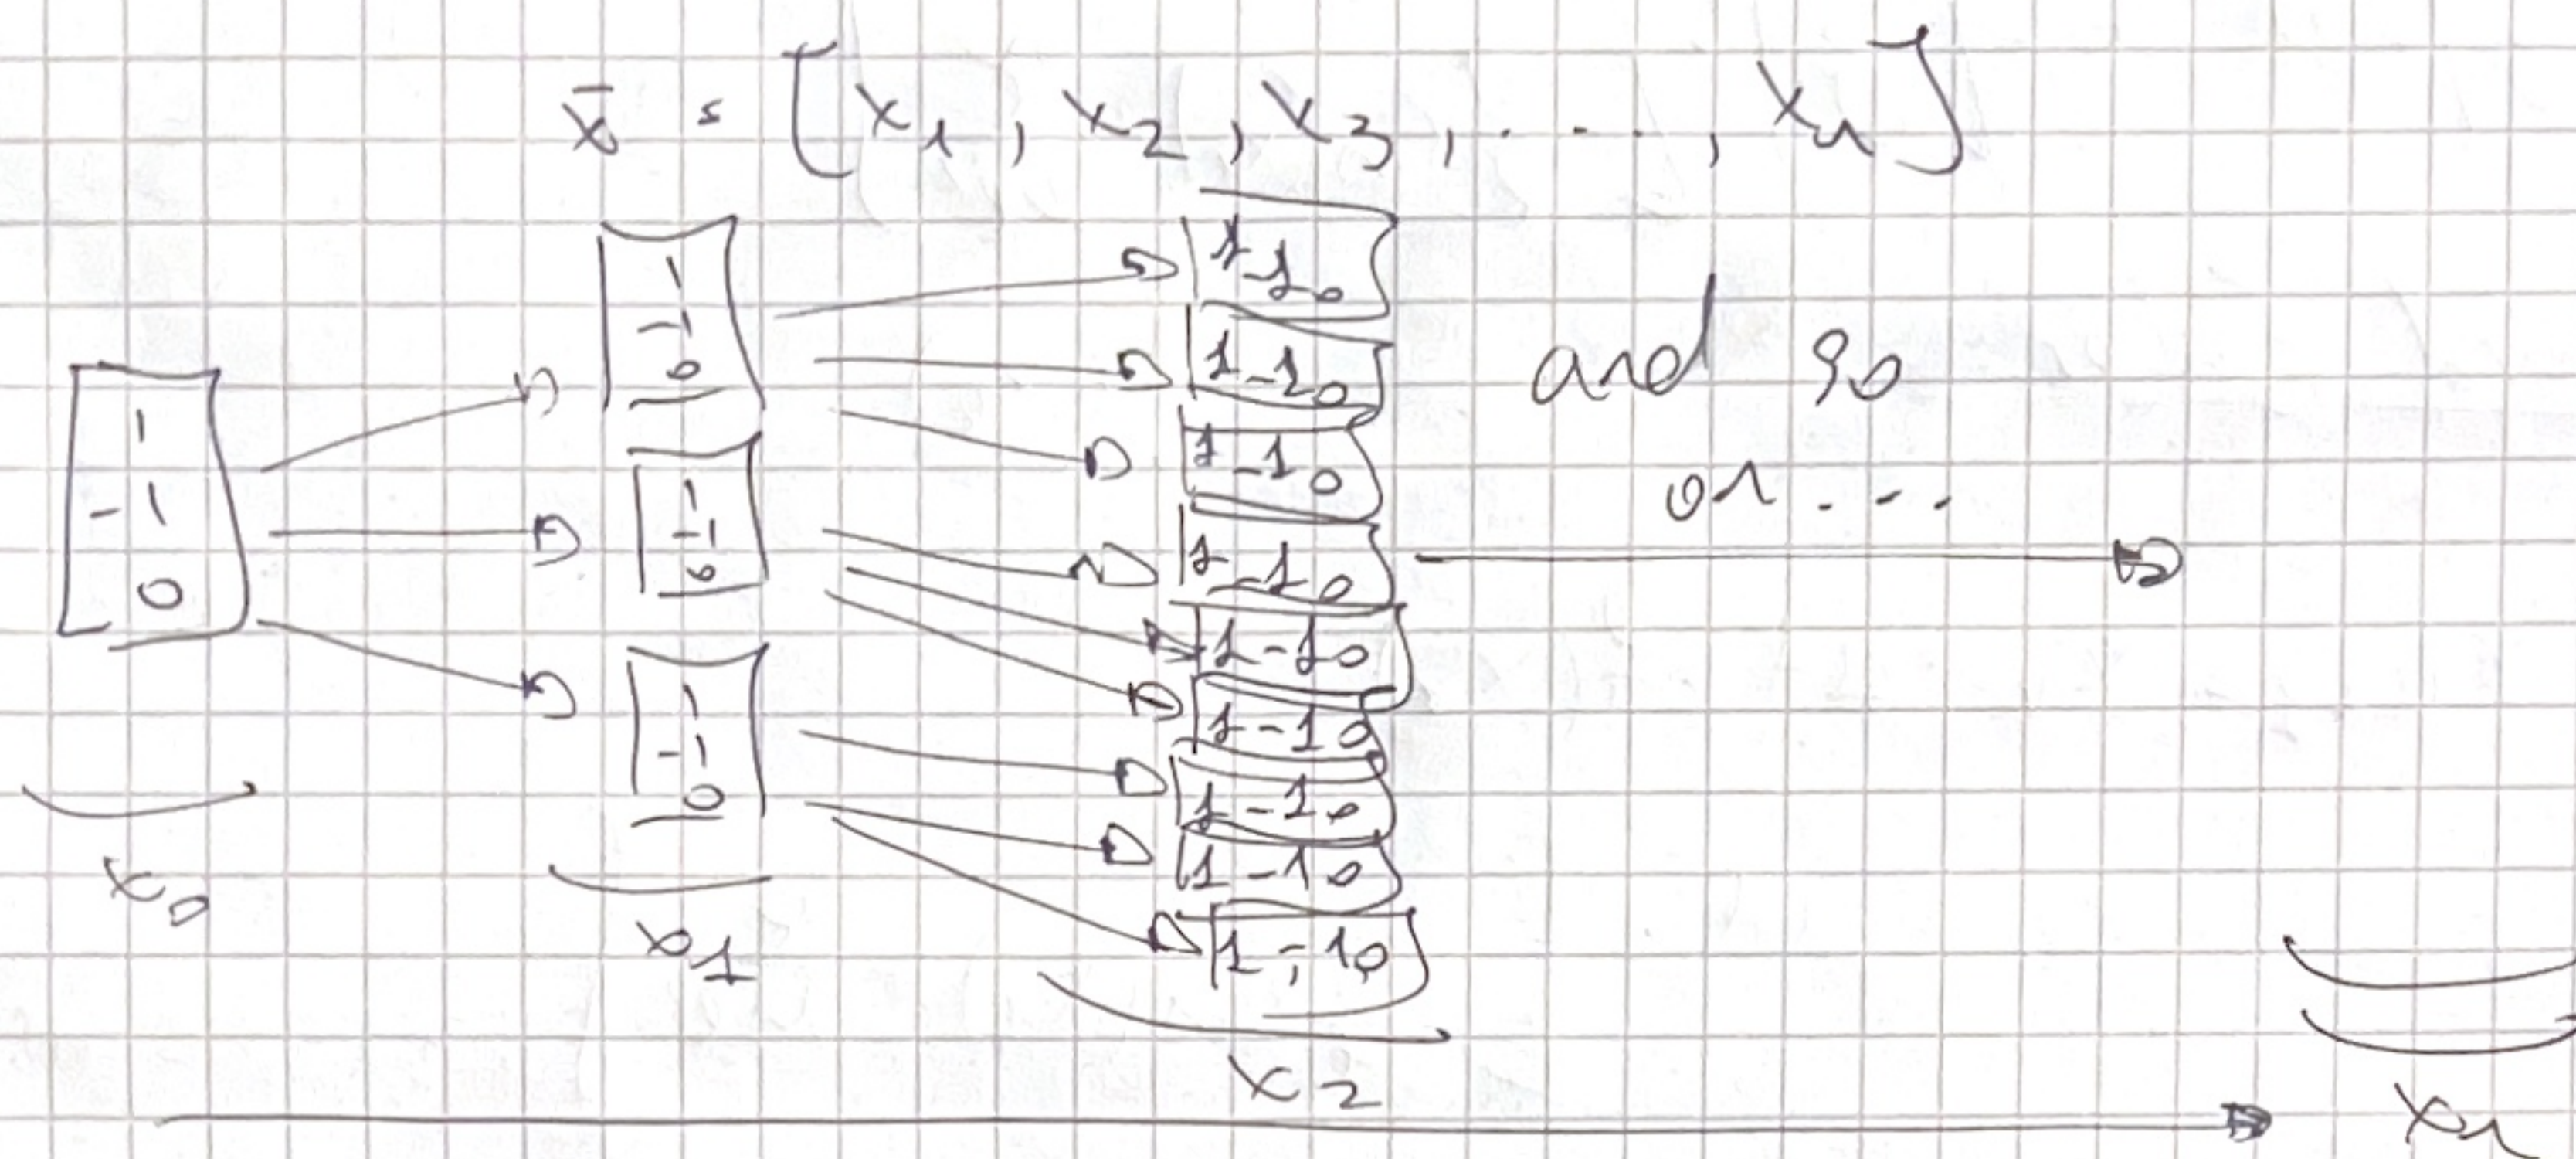 x̄ = [x₁, x₂, x₃, ...., xₙ]
1
-1
0
1
-1
0
1
-1
0
1
-1
0
1 -1 0
1 -1 0
1 -1 0
1 -1 0
1 -1 0
1 -1 0
1 -1 0
1 -1 0
1 -1 0
and so
on ...
x₀
x₁
x₂
xₙ